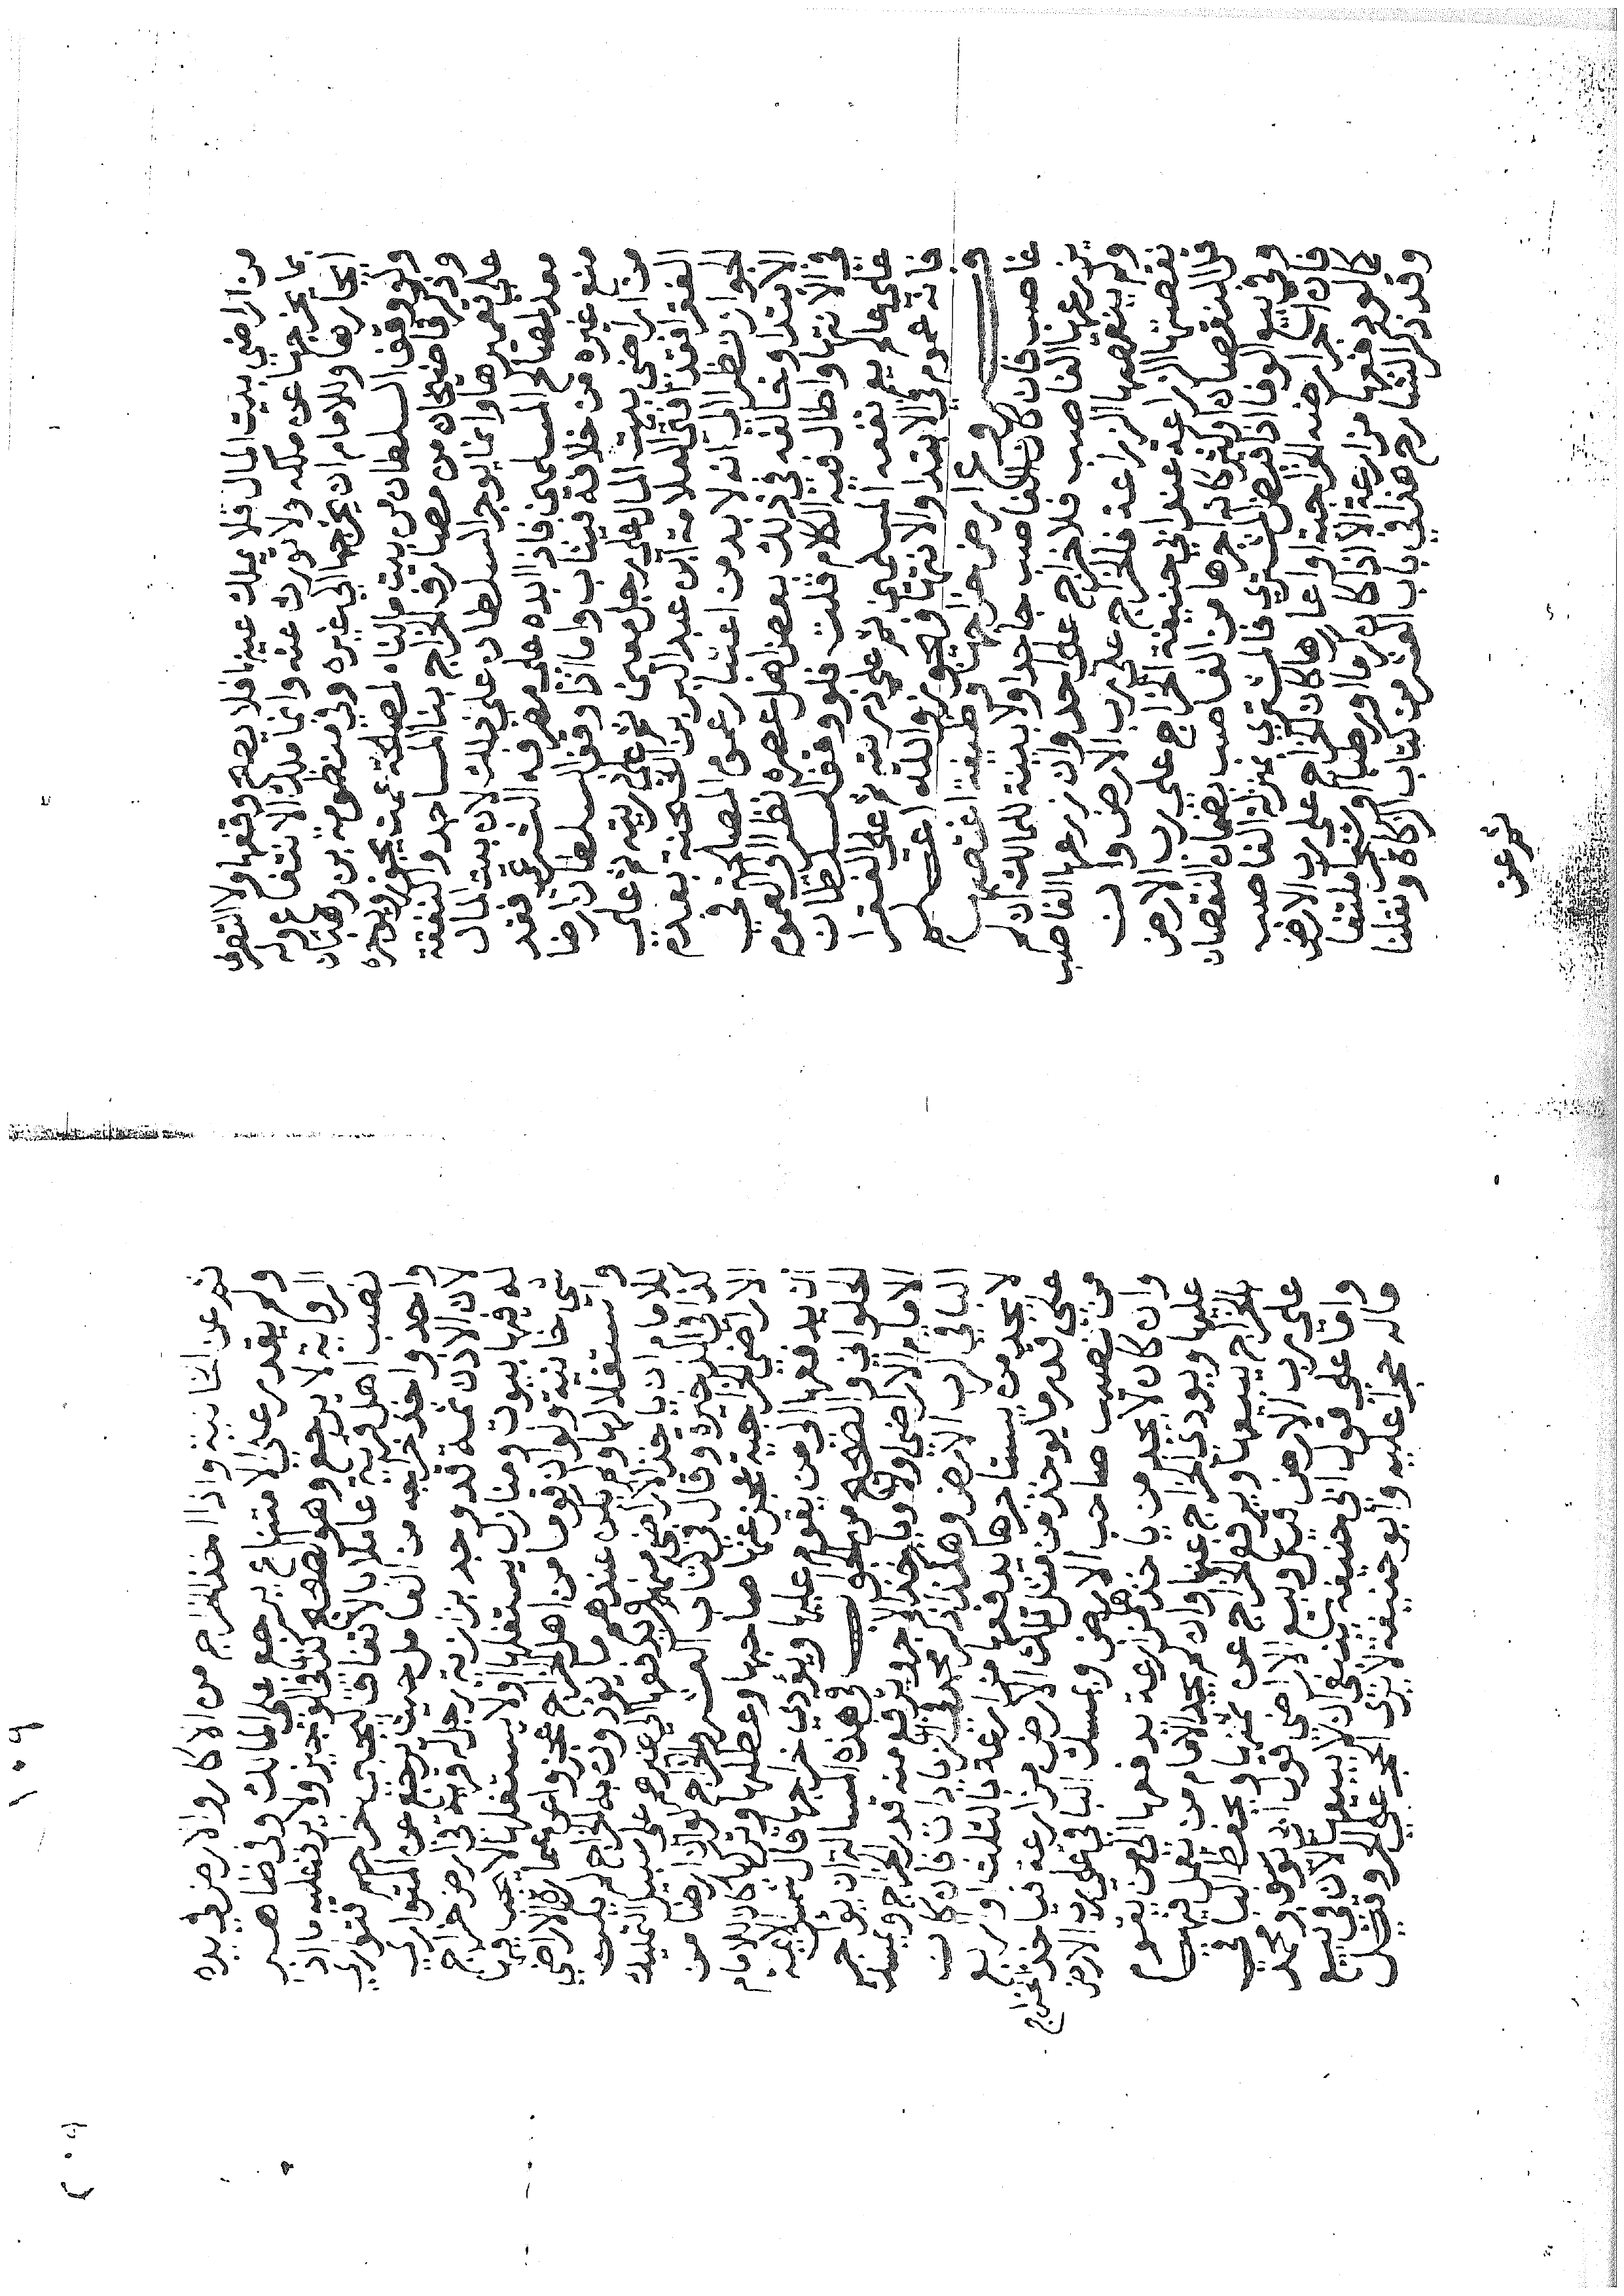 من اراضي بيت المال فلا يملك عينها فلا يصح وقفها ولا التصرف
بما يخرجها عن ملكه ولا تورث عنه وانما ملك الانتفاع وله
ايجارها وللامام ان يخرجها الى غيره وفي منظومة بن وهبان
ولو وقف السلطان من بيت مالنا لمصلحة عمت يجوز ويؤجر
وذكر قاضيخان من مصارف الخراج بنا المساجد والنفقة
على تعميرها وانما يؤجر السلطان على ذلك لان بيت المال
معد لمصالح المسلمين فاذا ابده على مصرفه الشرعي فقد
منع غيره من خلافه فيثاب واما اذا وقف السلطان ارضا
من اراضي بيت المال على رجل معين ثم على ذريته ثم على
الفقرا فقد افتى العلامة ابن عبد البر بن الشحنة بعدم
الجواز نظرا الى انه لا بد من اعتبار عموم المصالح في
الابتدا وخالفه في ذلك بعض اهل عصره نظرا الى العموم
في الانتها واطال فيه الكلام قلت فلو وقف السلطان
على عالم يعم نفعه المسلمين ثم على ذريته ثم على الفقرا
فانه عموم في الابتدا والانتها فيجوز والله اعلم
فروع ارض خراجها وظيفة اغتصبها
غاصب فان كان الغاصب جاحدا ولا بينة للمالك ان لم
يزرعها الغاصب فلا خراج على احد وان زرعها الغاصب
ولم ينقصها الزراعة فالخراج على رب الارض وان
نقصتها الزراعة عند ابي حنيفة الخراج على رب الارض
قل النقصان او كثر كانه اجرها من الغاصب بضمان النقصان
وفي بيع الوفا اذا قبض المشتري فالمشتري بمنزلة الغاصب
فان اجر ارضه الخراجية او اعارها كان الخراج على رب الارض
كما لو دفعها مزارعة الا اذا كان كرما او رطبا او شجرا ملتفا
وقد ذكر الشارح هذا في باب العشر من كتاب الزكاة ونقلنا
ثم عن
١٠٩
ثم عن الخانية واذا اخذ الخراج من الاكار والارض في يده
ولم يقدر على الامتناع يرجع على المالك وفي ظاهر
الرواية لا يرجع وهو الصحيح كذا في الوجيز ولا يرد عليه ما اذا
نصب اهل قرية عاملا بالاتفاق لجباية خراجهم فتوارى
واحد واخذ خراجه من العامل حيث يرجع على المتوارى
لان الاذن ثمة قد وجد بزازية رجل له قرية في ارض خراج
له فيها بيوت ومنازل يستغلها او لا يستغلها لا يجب فيها
شي خانية ولو ان قوما من اهل الخراج عجزوا عن عمارة الاراضي
واستغلالها ولم يكن عندهم ما يؤدون به الخراج لم يكن
للامام ان ياخذ الاراضي منهم ويدفعها الى غيرهم على سبيل التمليك
كذا في الذخيرة وقال في كتاب العشر والخراج لو ان ارضا من
الاراضي الخراجية عجز عنها صاحبها وعطلها وتركها كان للامام
ان يدفعها الى من يقوم عليها ويؤدي خراجها قال شمس الائمة
الحلواني والصحيح من الجواب في هذه المسالة ان يؤاجر
الامام الاراضي اولا وياخذ الاجر ويرفع منه قدر الخراج ويمسك
الباقي لرب الارض وهكذا ذكر محمد في الزيادات فان كان
لا يجد من يستاجرها يدفعها مزارعة بالثلث او ربع
على قدر ما يؤخذ من مثل تلك الارض مزارعة فياخذ الخراج
من نصيب صاحب الارض ويمسك الباقي على رب الارض
وان كان لا يجد من ياخذها مزارعة يدفعها الى من يقوم
عليها ويؤدي الخراج عنها وان لم يجد الامام من يعمل فيها
بالخراج يبيعها ويرفع الخراج عن ثمنها ويحفظ الباقي
على رب الارض قيل وبيع الاراضي قول ابي يوسف ومحمد
واما على قول ابي حنيفة ينبغي ان لا يبيعها لان في بيع
ماله حجرا عليه وابو حنيفة لا يرى الحجر على الحر وقيل